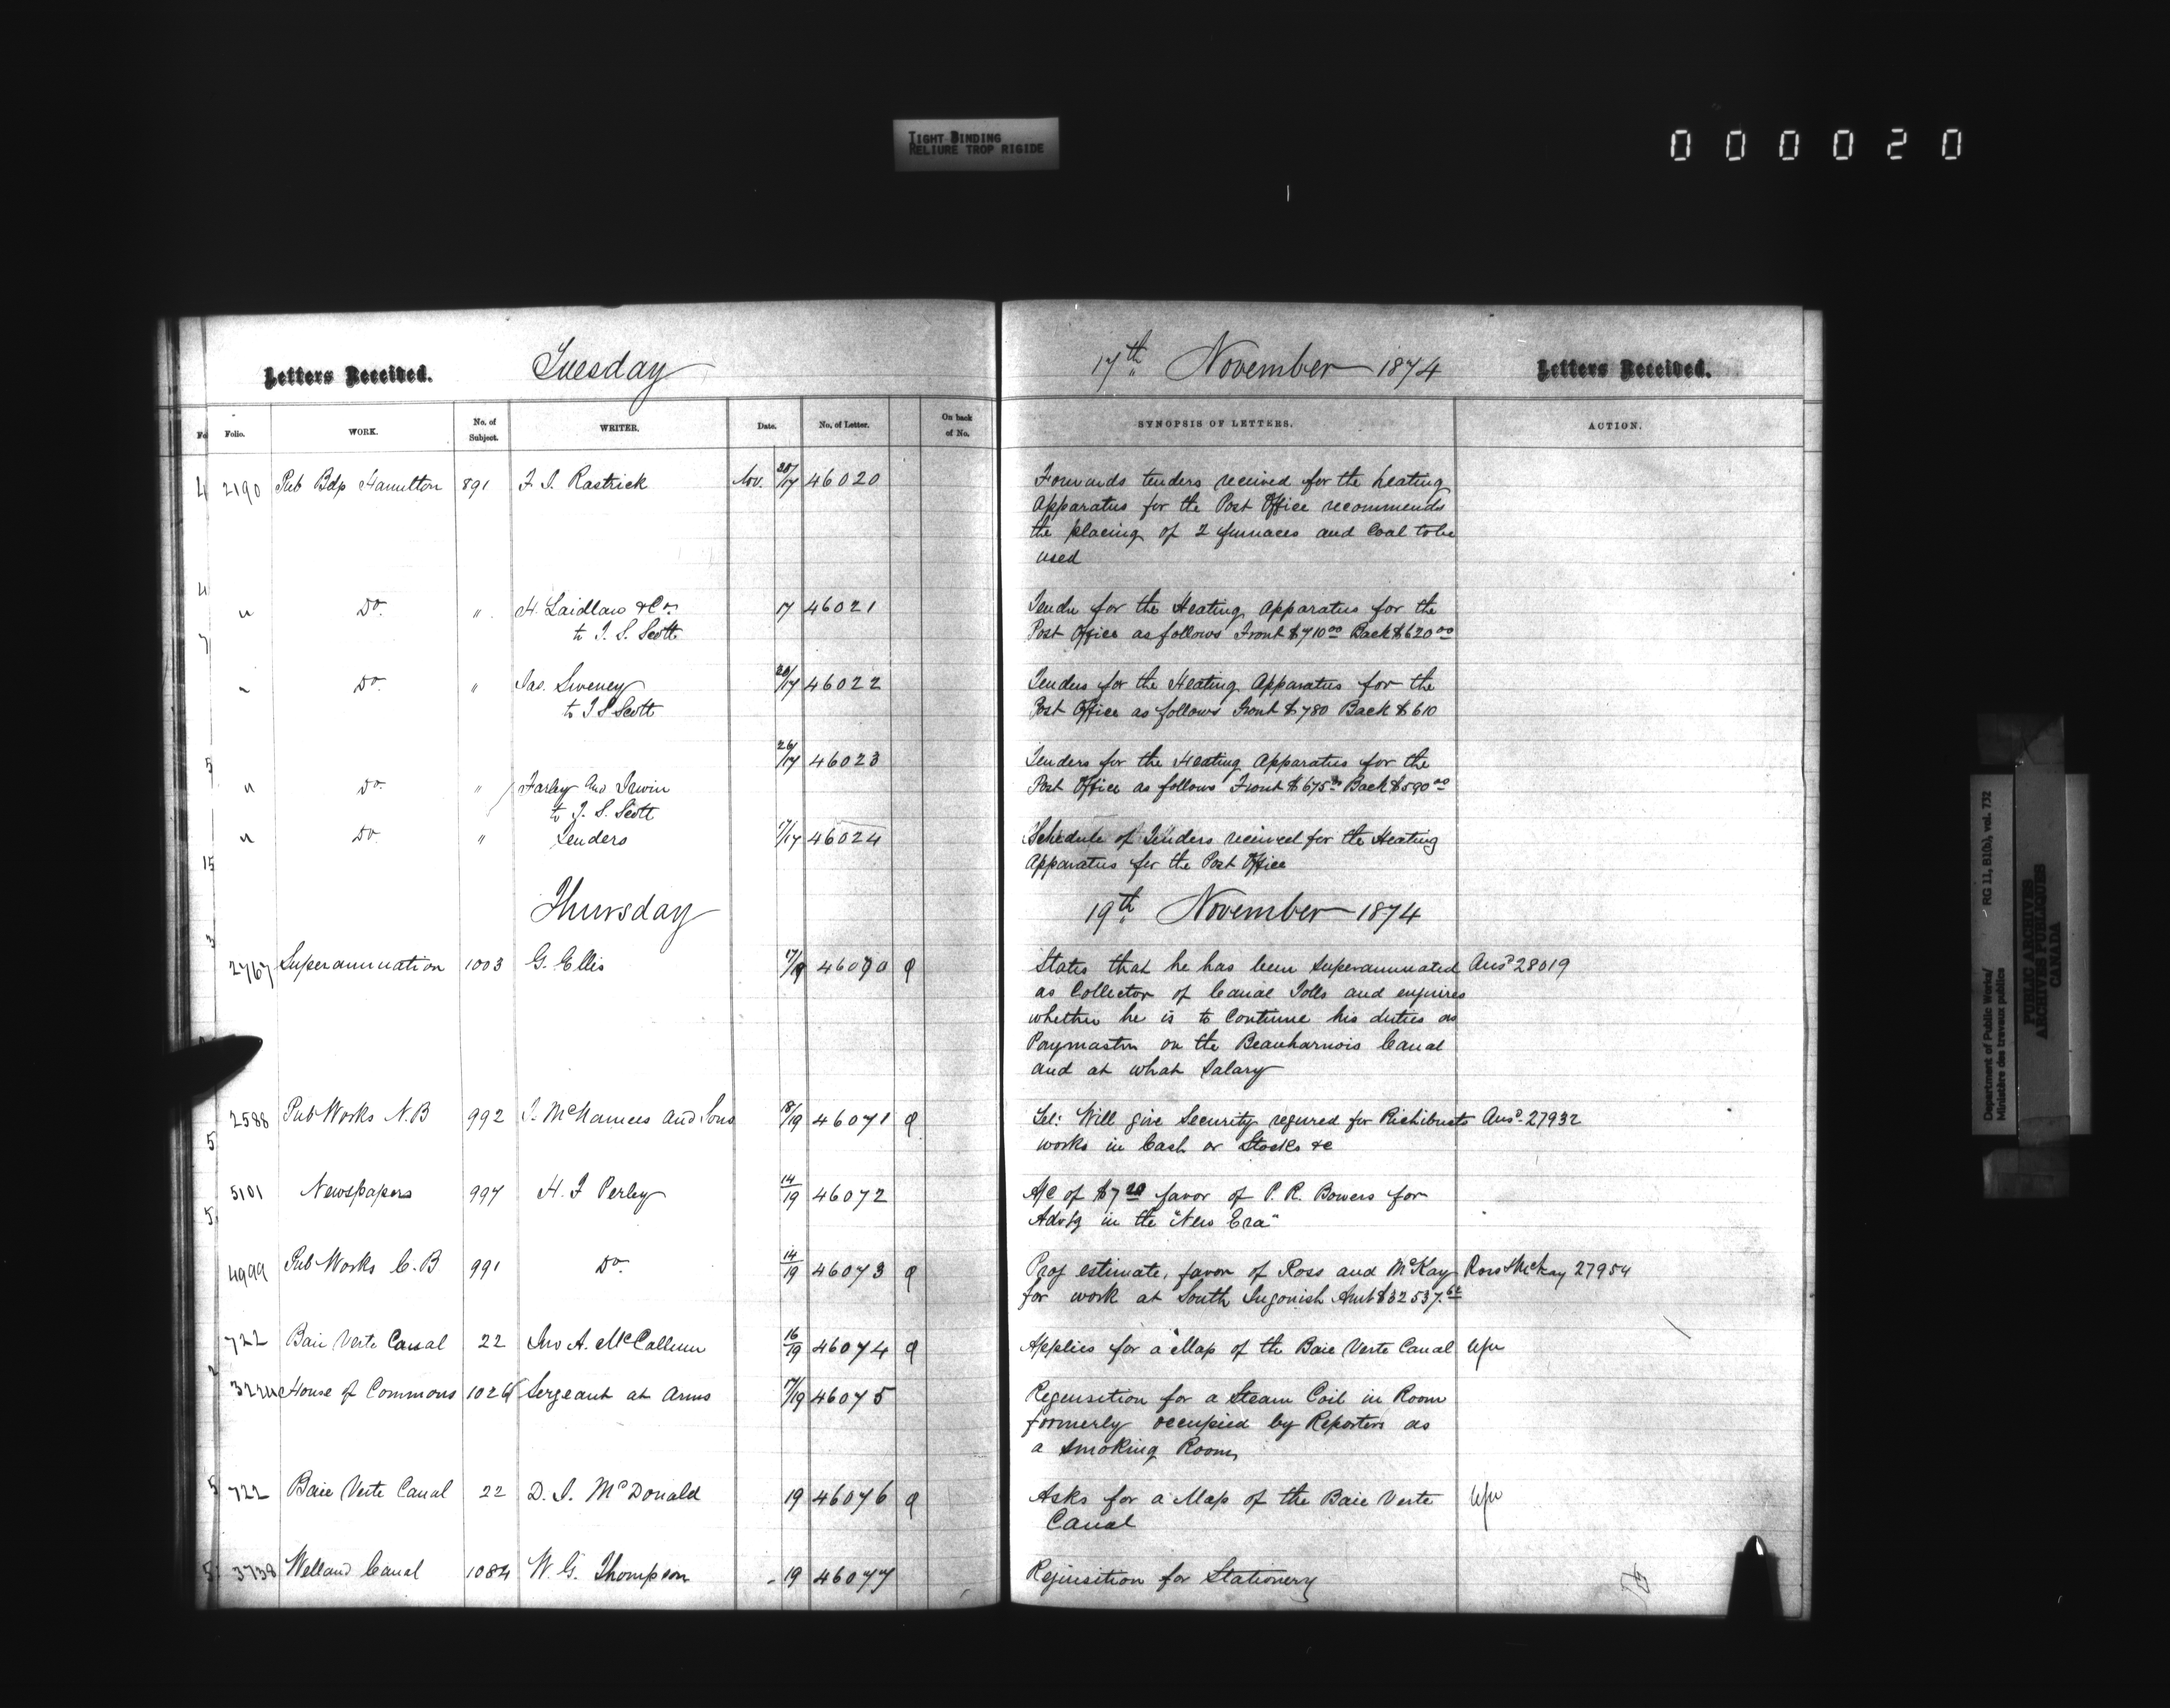 TIGHT BINDING
RELIURE TROP RIGIDE
000020
Letters Received. Tuesday 17th November 1874 Letters Received.
Folio. WORK. No. of Subject. WRITER. Date. No. of Letter. On back of No. SYNOPSIS OF LETTERS. ACTION.
2190 Pub Bdgs Hamilton 891 F. J. Rastrick Nov. /17 46020 Forwards tenders received for the heating
Apparatus for the Post Office recommends
the placing of 2 furnaces and Coal to be
used
" Do. " H. Laidlaw & Co. 17 46021 Tender for the Heating Apparatus for the
to T. S. Scott Post Office as follows Front $710.00 Back $620.00
" Do. " Jas. Sweeney /17 46022 Tenders for the Heating Apparatus for the
to T S Scott Post Office as follows Front $780 Back $610
26/17 46023 Tenders for the Heating Apparatus for the
" Do. " Farley and Irwin Post Office as follows Front $675.00 Back $590.00
to T. S. Scott
" Do " Tenders 17/17 46024 Schedule of Tenders received for the Heating
Apparatus for the Post Office
Thursday 19th November 1874
2767 Superannuation 1003 G. Ellis 17/19 46070 States that he has been superannuated Ansd 28019
as Collector of Canal Tolls and enquires
whether he is to Continue his duties as
Paymaster on the Beauharnois Canal
and at what Salary
2588 Pub Works N.B 992 J. McNamees and Sons 18/19 46071 Tel: Will give Security required for Richibucto Ansd. 27932
works in Cash or Stocks &c
5101 Newspapers 997 H. F Perley 14/19 46072 A/c of $7.20 favor of P. R. Bowers for
Advtg in the "New Era"
4999 Pub Works C.B 991 Do. 14/19 46073 Prog estimate, favor of Ross and McKay Ross & McKay 27954
for work at South Ingonish Amt $32537.
722 Baie Verte Canal 22 Jno A. McCallum 16/19 46074 Applies for a Map of the Baie Verte Canal
House of Commons 1026 Sergeant at Arms 17/19 46075 Requisition for a Steam Coil in Room
formerly occupied by Reporters as
a Smoking Room
722 Baie Verte Canal 22 D. J. McDonald 19 46076 Asks for a Map of the Baie Verte
Canal
3738 Welland Canal 1084 W. G. Thompson 19 46077 Requisition for Stationery
Department of Public Works/ RG 11, B1(b), vol. 732
Ministère des travaux publics
PUBLIC ARCHIVES
ARCHIVES PUBLIQUES
CANADA